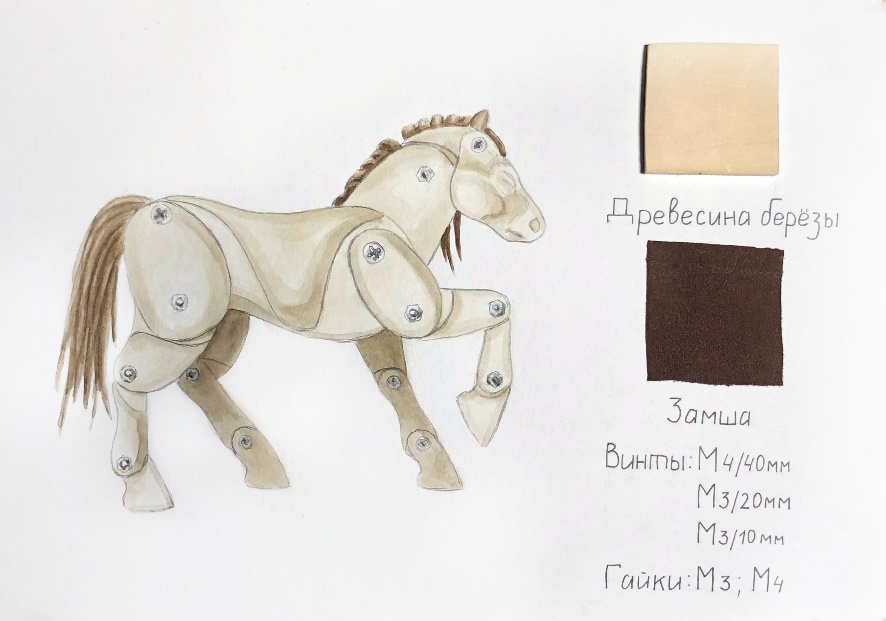 Древесина берёзы
Замша
Винты: М4/40мм
М3/20мм
М3/10мм
Гайки: М3; М4